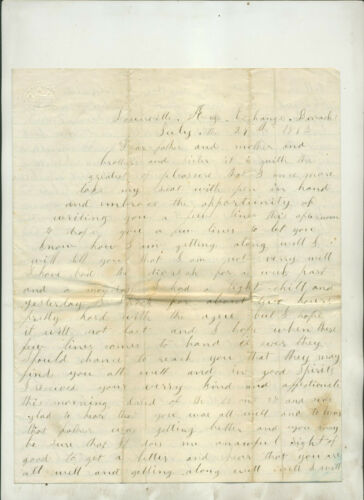 Louisville. Ky. Exchange. Barracks
July. the 29th 1863
Dear father and mother and
brother and sister it is with the
greatest of pleasure that I once more
take my seat with pen in hand
and embrace the opportunity of
writing you a few lines this afternoon
to you a few lines to let you
know how I am getting along well I
will tell you that I am not very well
I have had the for a week past
and a monday I had a light chill and
yesterday I for about five hours
pretty hard with the ague but I hope
it will not last and I hope when these
few lines comes to hand or ever they
should chance to reach you that they may
find you all well and in good spirits
I received your verry kind and
this morning dated of the and was
glad to hear that you was all well and to
that father was getting better and you may
be sure that it dos me an awful sight of
good to get a letter and hear that you are
all well and getting along well well I will